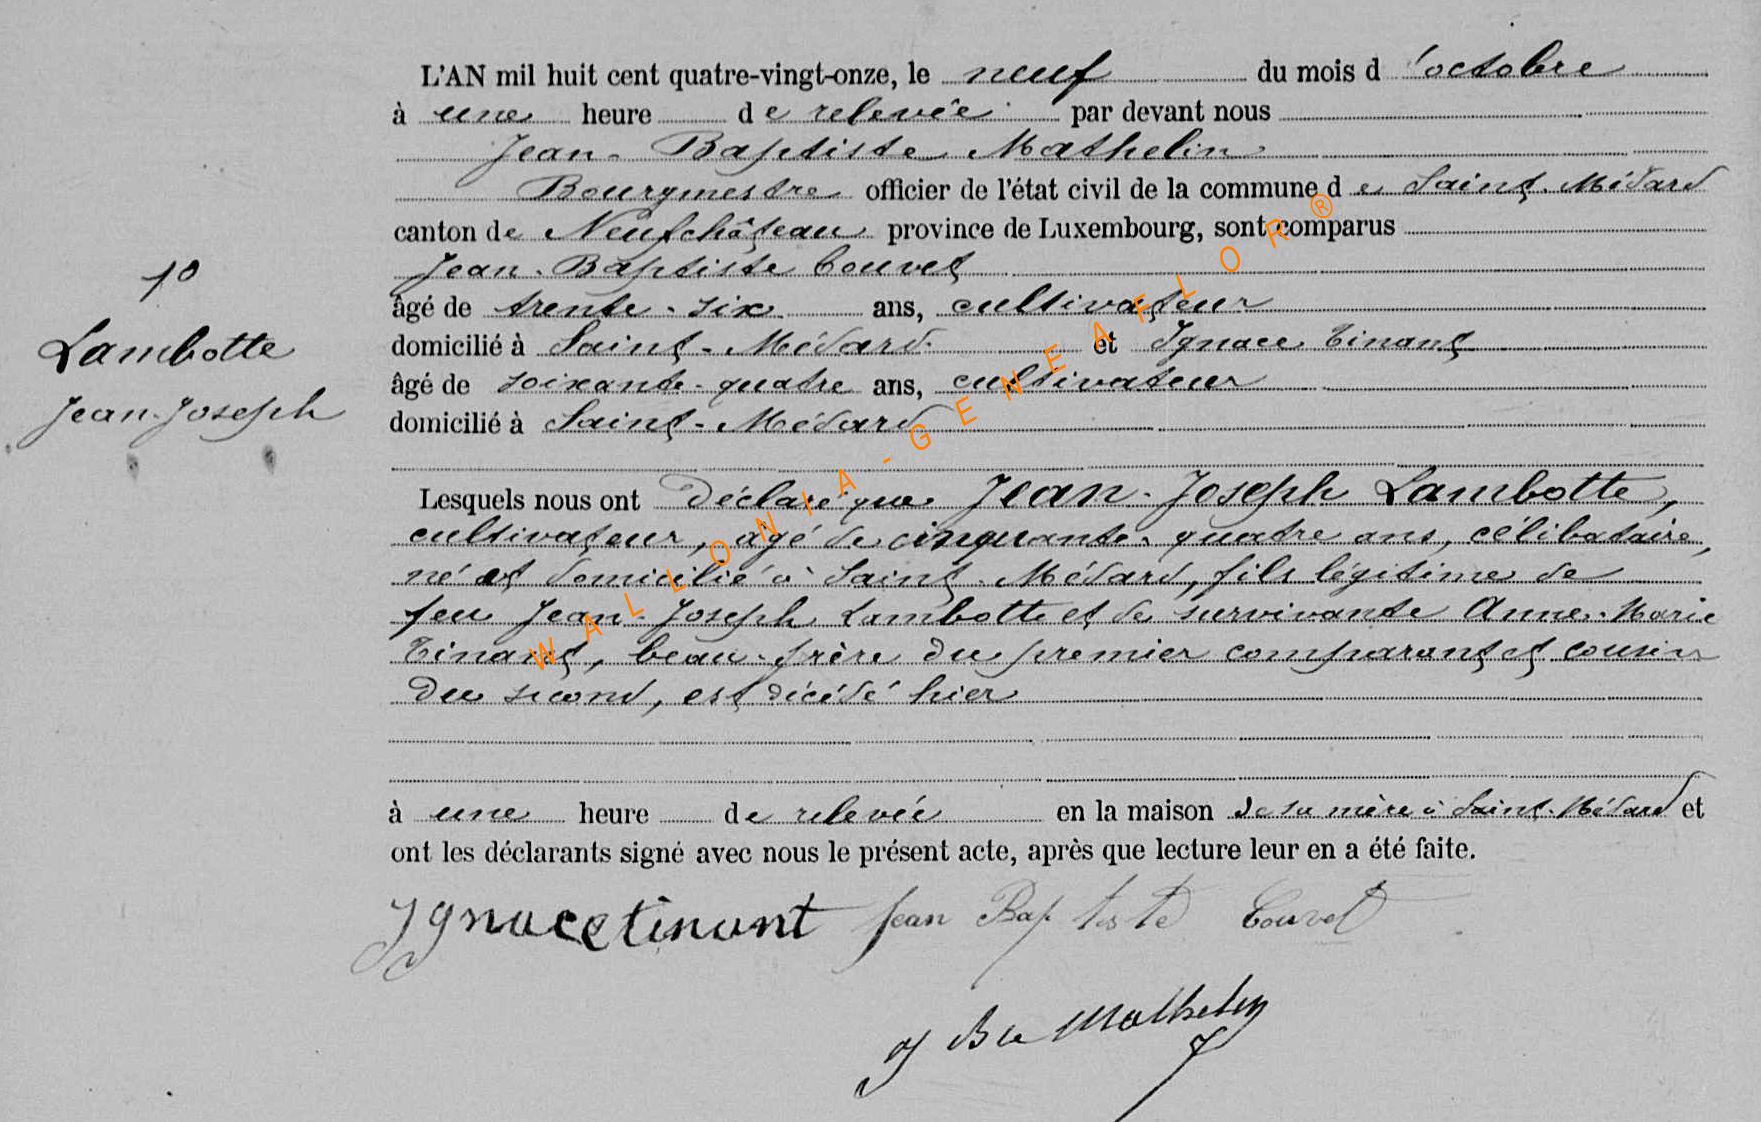 L'AN mil huit cent quatre-vingt-onze, le neuf du mois d'octobre
à une heure de relevée par devant nous
Jean-Baptiste Mathelin
Bourgmestre officier de l'état civil de la commune de Saint-Médard
canton de Neufchâteau province de Luxembourg, sont comparus
Jean-Baptiste Couvet
âgé de trente-six ans, cultivateur
domicilié à Saint-Médard et Ignace Tinant
âgé de soixante-quatre ans, cultivateur
domicilié à Saint-Médard
10
Lambotte
Jean-Joseph
Lesquels nous ont déclaré que Jean-Joseph Lambotte,
cultivateur, âgé de cinquante-quatre ans, célibataire,
né et domicilié à Saint-Médard, fils légitime de
feu Jean-Joseph Lambotte et de survivante Anne-Marie
Tinant, beau-frère du premier comparant et cousin
du second, est décédé hier
à une heure de relevée en la maison de sa mère à Saint-Médard et
ont les déclarants signé avec nous le présent acte, après que lecture leur en a été faite.
Ignace tinant Jean Baptiste Couvet
J Bte Mathelin
WALLONIA-GENEAFLOR®